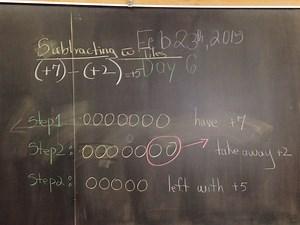 Subtracting Tiles
Feb 23rd, 2015
(+7) - (+2) = +5
Day 6
Step 1 : OOOOOOO have +7
Step 2: OOOOOOO take away +2
Step 2: OOOOO left with +5